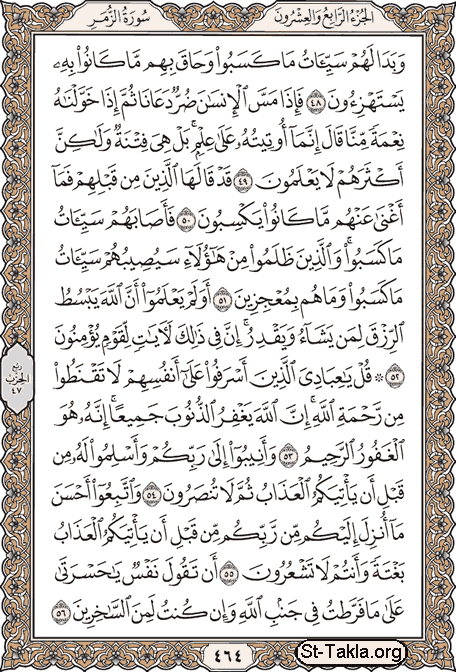 الجزء الرابع والعشرون سورة الزمر
وَبَدَا لَهُمْ سَيِّـَٔاتُ مَا كَسَبُوا۟ وَحَاقَ بِهِم مَّا كَانُوا۟ بِهِۦ
يَسْتَهْزِءُونَ ٤٨ فَإِذَا مَسَّ ٱلْإِنسَٰنَ ضُرٌّ دَعَانَا ثُمَّ إِذَا خَوَّلْنَٰهُ
نِعْمَةً مِّنَّا قَالَ إِنَّمَآ أُوتِيتُهُۥ عَلَىٰ عِلْمٍۭ ۚ بَلْ هِىَ فِتْنَةٌ وَلَٰكِنَّ
أَكْثَرَهُمْ لَا يَعْلَمُونَ ٤٩ قَدْ قَالَهَا ٱلَّذِينَ مِن قَبْلِهِمْ فَمَآ
أَغْنَىٰ عَنْهُم مَّا كَانُوا۟ يَكْسِبُونَ ٥٠ فَأَصَابَهُمْ سَيِّـَٔاتُ
مَا كَسَبُوا۟ ۚ وَٱلَّذِينَ ظَلَمُوا۟ مِنْ هَٰٓؤُلَآءِ سَيُصِيبُهُمْ سَيِّـَٔاتُ
مَا كَسَبُوا۟ وَمَا هُم بِمُعْجِزِينَ ٥١ أَوَلَمْ يَعْلَمُوٓا۟ أَنَّ ٱللَّهَ يَبْسُطُ
ٱلرِّزْقَ لِمَن يَشَآءُ وَيَقْدِرُ ۚ إِنَّ فِى ذَٰلِكَ لَءَايَٰتٍ لِّقَوْمٍ يُؤْمِنُونَ
٥٢ ۞ قُلْ يَٰعِبَادِىَ ٱلَّذِينَ أَسْرَفُوا۟ عَلَىٰٓ أَنفُسِهِمْ لَا تَقْنَطُوا۟
مِن رَّحْمَةِ ٱللَّهِ ۚ إِنَّ ٱللَّهَ يَغْفِرُ ٱلذُّنُوبَ جَمِيعًا ۚ إِنَّهُۥ هُوَ
ٱلْغَفُورُ ٱلرَّحِيمُ ٥٣ وَأَنِيبُوٓا۟ إِلَىٰ رَبِّكُمْ وَأَسْلِمُوا۟ لَهُۥ مِن
قَبْلِ أَن يَأْتِيَكُمُ ٱلْعَذَابُ ثُمَّ لَا تُنصَرُونَ ٥٤ وَٱتَّبِعُوٓا۟ أَحْسَنَ
مَآ أُنزِلَ إِلَيْكُم مِّن رَّبِّكُم مِّن قَبْلِ أَن يَأْتِيَكُمُ ٱلْعَذَابُ
بَغْتَةً وَأَنتُمْ لَا تَشْعُرُونَ ٥٥ أَن تَقُولَ نَفْسٌ يَٰحَسْرَتَىٰ
عَلَىٰ مَا فَرَّطتُ فِى جَنۢبِ ٱللَّهِ وَإِن كُنتُ لَمِنَ ٱلسَّٰخِرِينَ ٥٦
ربع
الحزب
٤٧
٤٦٤
St-Takla.org